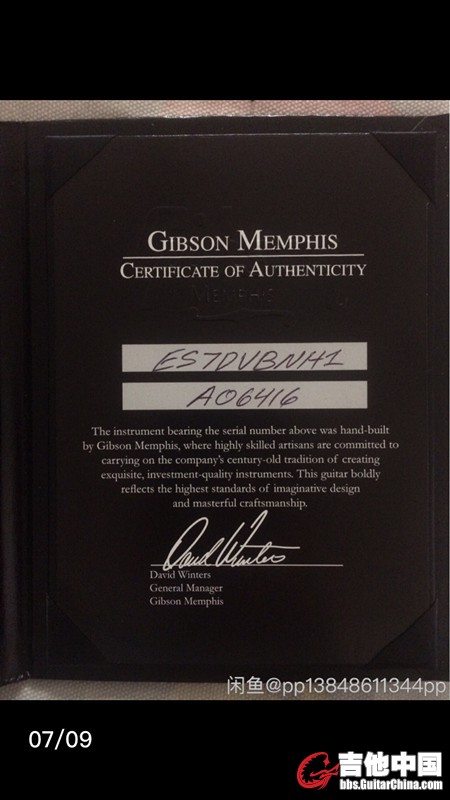 GIBSON MEMPHIS
CERTIFICATE OF AUTHENTICITY
MEMPHIS
ES7DVBNH1
A06416
The instrument bearing the serial number above was hand-built
by Gibson Memphis, where highly skilled artisans are committed to
carrying on the company's century-old tradition of creating
exquisite, investment-quality instruments. This guitar boldly
reflects the highest standards of imaginative design
and masterful craftsmanship.
David Winters
David Winters
General Manager
Gibson Memphis
闲鱼@pp13848611344pp
07/09
吉他中国
bbs.GuitarChina.com